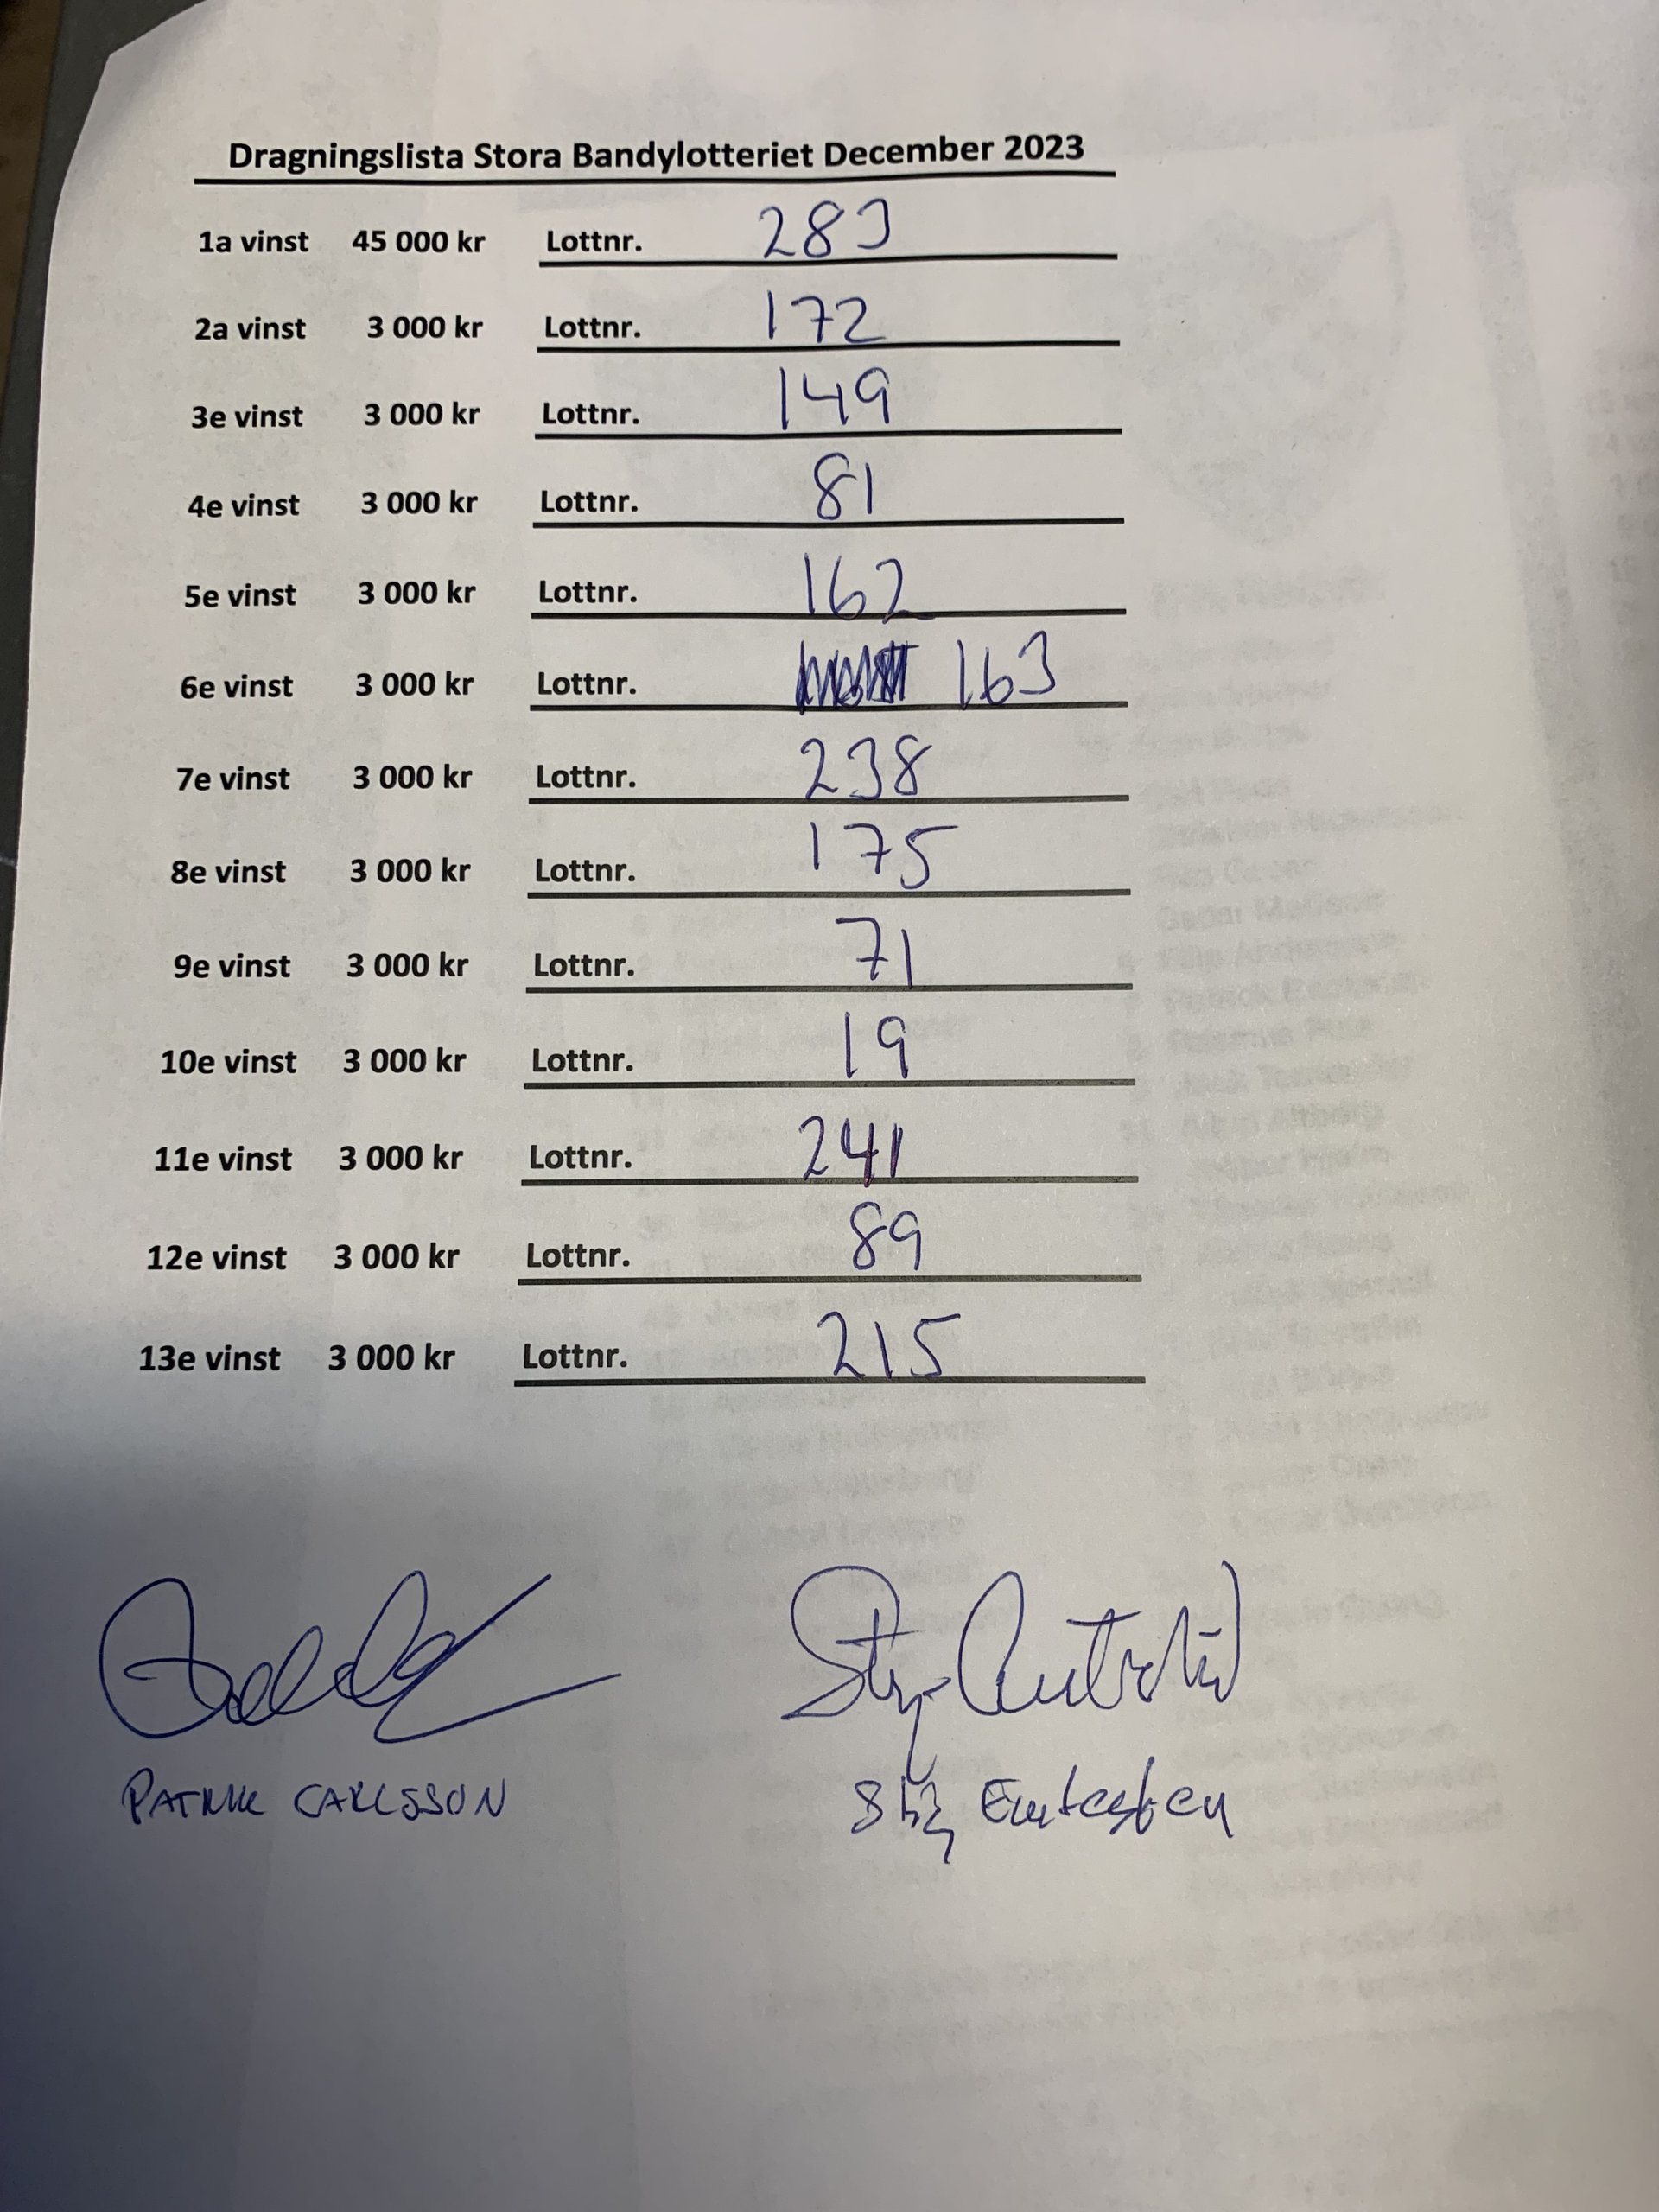 Dragningslista Stora Bandylotteriet December 2023
1a vinst 45 000 kr Lottnr. 283
2a vinst 3 000 kr Lottnr. 172
3e vinst 3 000 kr Lottnr. 149
4e vinst 3 000 kr Lottnr. 81
5e vinst 3 000 kr Lottnr. 162
6e vinst 3 000 kr Lottnr. 163
7e vinst 3 000 kr Lottnr. 238
8e vinst 3 000 kr Lottnr. 175
9e vinst 3 000 kr Lottnr. 71
10e vinst 3 000 kr Lottnr. 19
11e vinst 3 000 kr Lottnr. 241
12e vinst 3 000 kr Lottnr. 89
13e vinst 3 000 kr Lottnr. 215
PATRIK CARLSSON Stig